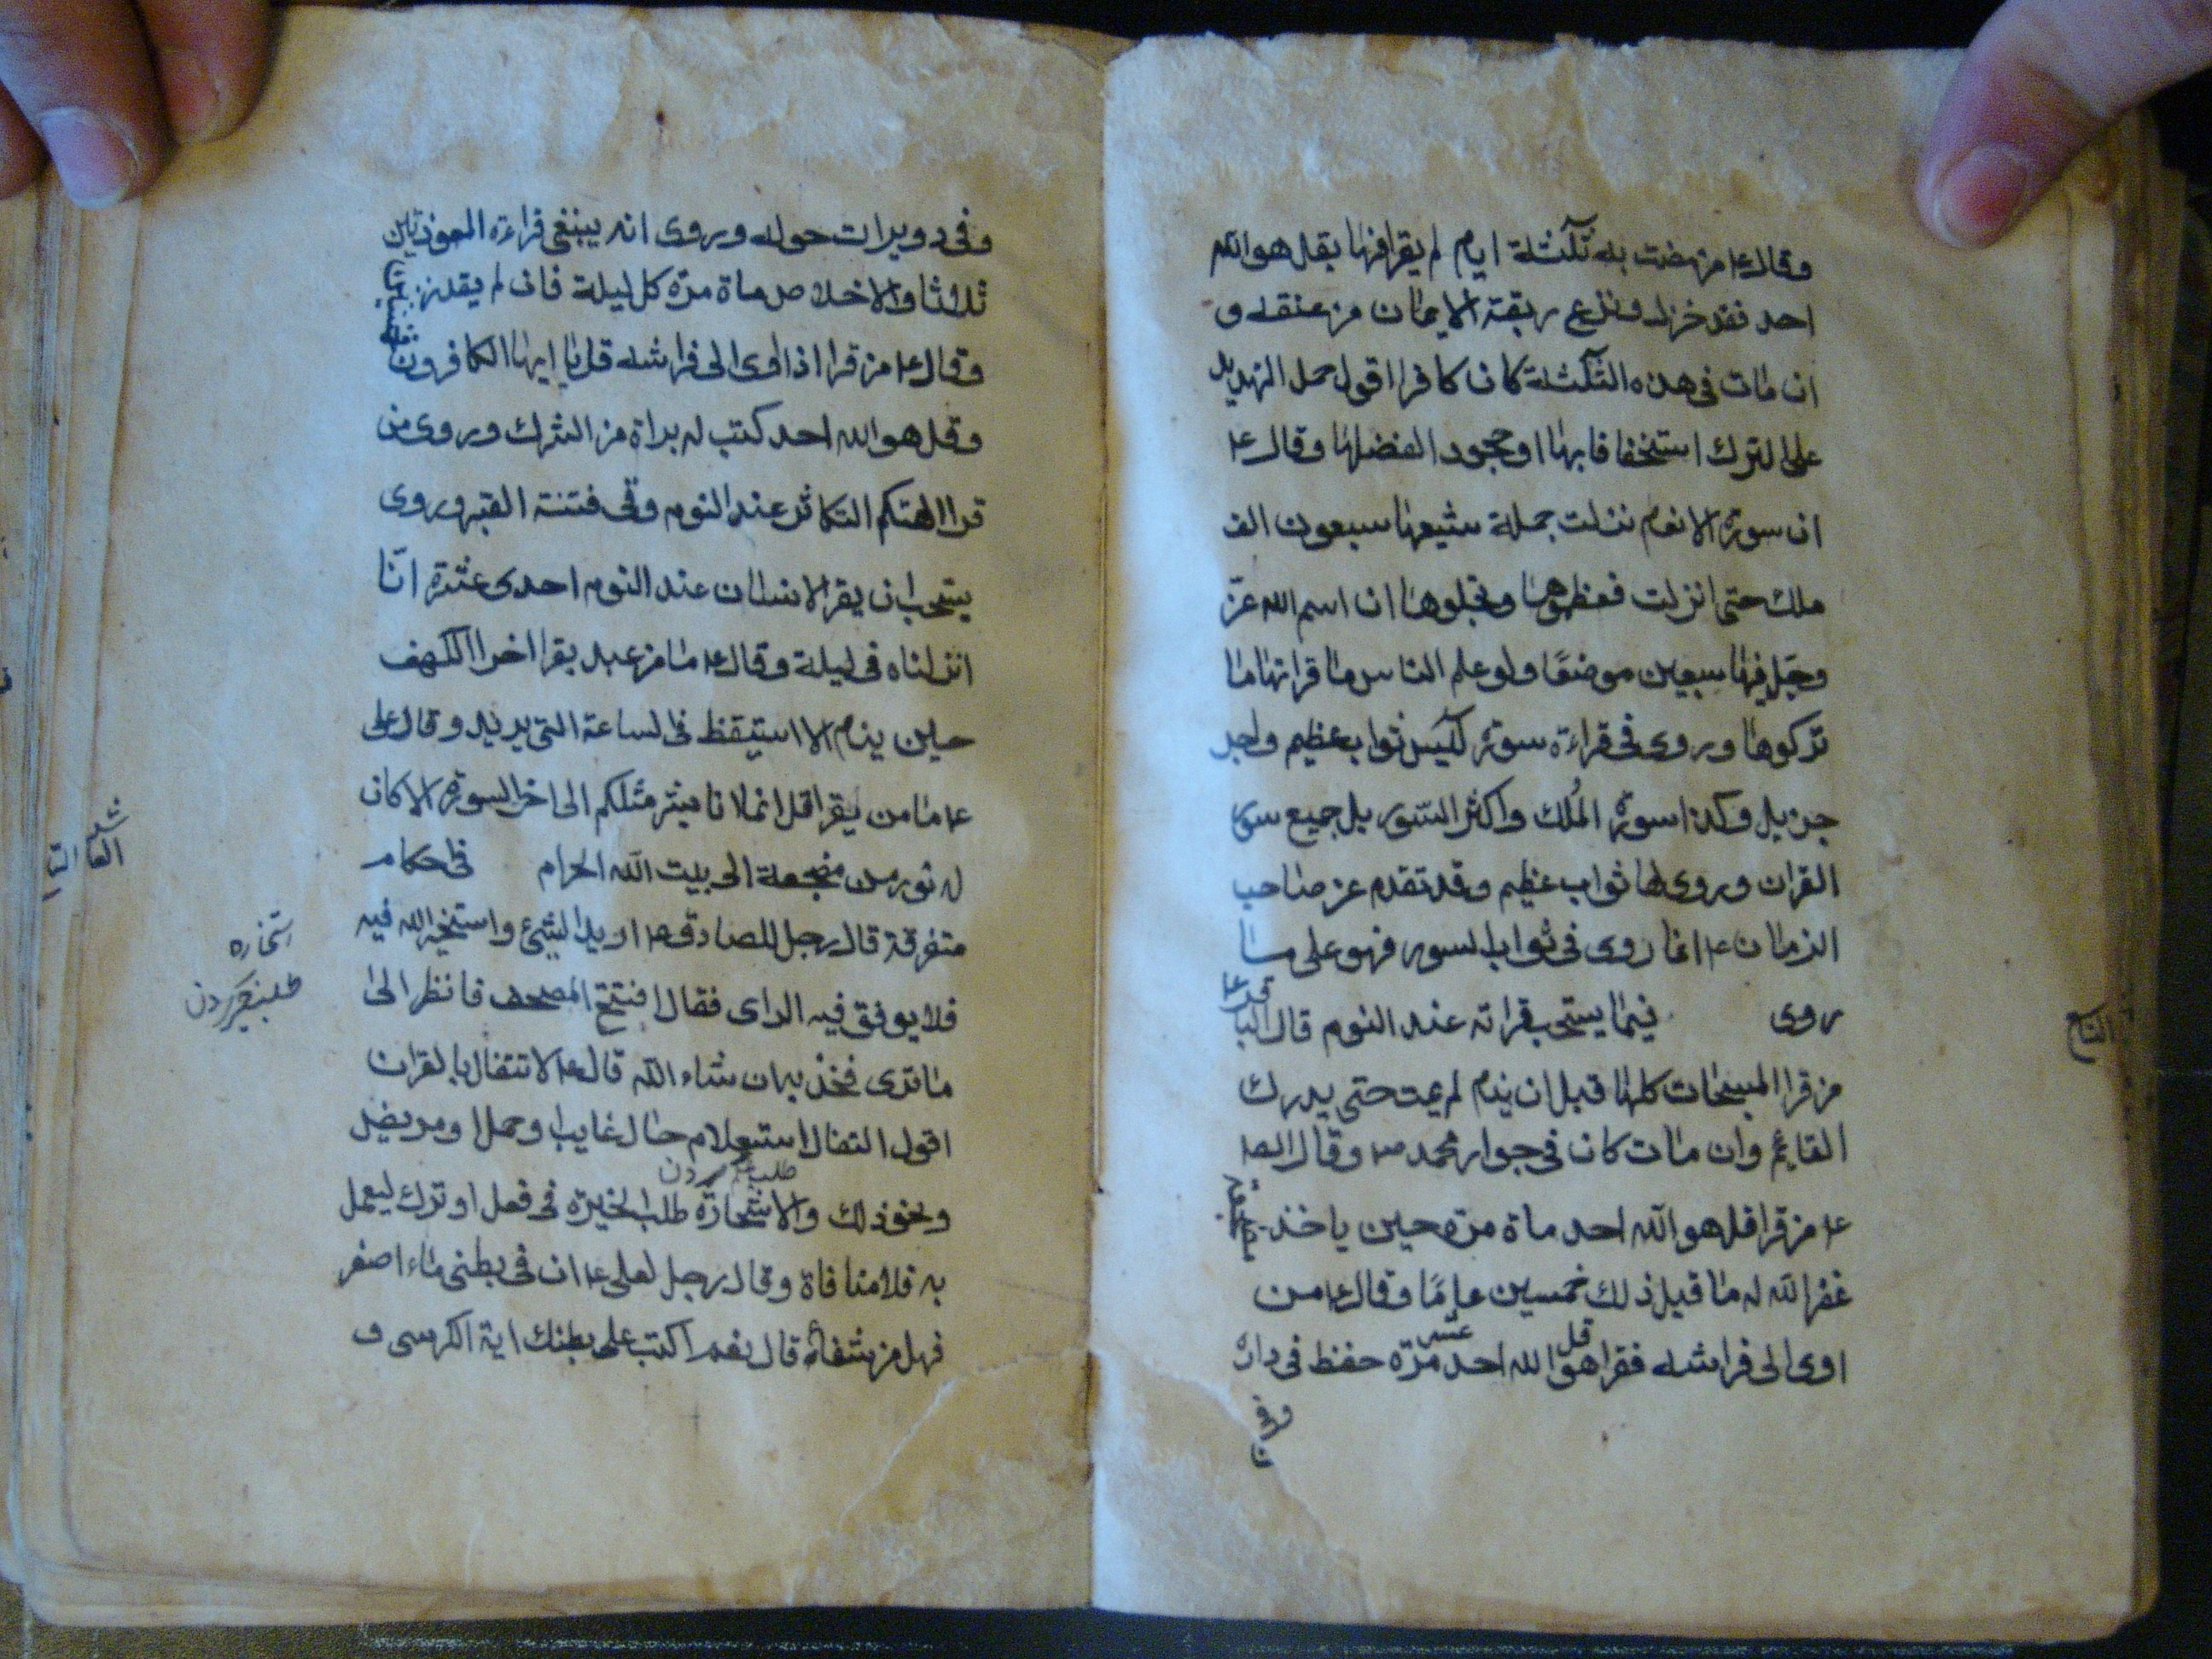 وقال ع من مضت به ثلثة ايام لم يقرا فيها بقل هو الله
احد فقد خذل ونزع ربقة الايمان من عنقه و
ان مات في هذه الثلثة كان كافرا اقول حمل التهديد
على الترك استخفافا بها او جحودا لفضلها وقال ع
ان سورة الانعام نزلت جملة شيعها سبعون الف
ملك حتى انزلت فعظموها وبجلوها ان اسم الله عزّ
وجل فيها سبعين موضعًا ولو علم الناس ما قراتها ما
تركوها وروى في قراءة سورة يس ثواب عظيم واجر
جزيل وكذا سورة المُلك واكثر السّور بل جميع سور
القران وروى لها ثواب عظيم وقد تقدم عن صاحب
الزمان ع انما روى في ثواب السور فهو على ما
روى فيما يستحب قراته عند النوم قال الباقر ع
من قرا المسبحات كلها قبل ان ينام لم يمت حتى يدرك
القايم وان مات كان في جوار محمد ص وقال الص
ع من قرا قل هو الله احد ماة مرة حين ياخذ مضجعه
غفر الله له ما قبل ذلك خمسين عامًا وقال ع من
اوى الى فراشه فقرا قل هو الله احد عشر مرّة حفظ في داره
وفي د
التاسع
وفي دويرات حوله وروى انه ينبغي قراءة المعوذتين
ثلاثا والاخلاص ماة مرّة كل ليلة فان لم يقدر فخمسين
وقال ع من قرا اذا اوى الى فراشه قل يا ايها الكافرون
وقل هو الله احد كتب له براة من الشرك وروى من
قرا الهيكم التكاثر عند النوم وقى فتنة القبر وروى
يستحب ان يقر الانسان عند النوم احدى عشرة انّا
انزلناه في ليلة وقال ع ما من عبد يقرا اخر الكهف
حين ينام الا استيقظ في الساعة التى يريد وقال على
ع ما من يقرا قل انما انا بشر مثلكم الى اخر السورة الا كان
له نور من مضجعه الى بيت الله الحرام في احكام
متفرقة قال رجل للصادق ع اريد الشئ واستخير الله فيه
فلا يوفق فيه الراى فقال افتتح المصحف فانظر الى
ما ترى فخذ به ان شاء الله قال ع لا تتفال بالقران
اقول التفال استعلام حال غايب وحمل ومريض
طلب خير كردن
ونحو ذلك والاستخارة طلب الخيرة في فعل او ترك ليعمل
به فلا منافاة وقال رجل لعلى ع ان في بطنى ماء اصفر
فهل من شفاء قال نعم اكتب على بطنك اية الكرسى و
العاشر
استخاره
طلب خير كردن